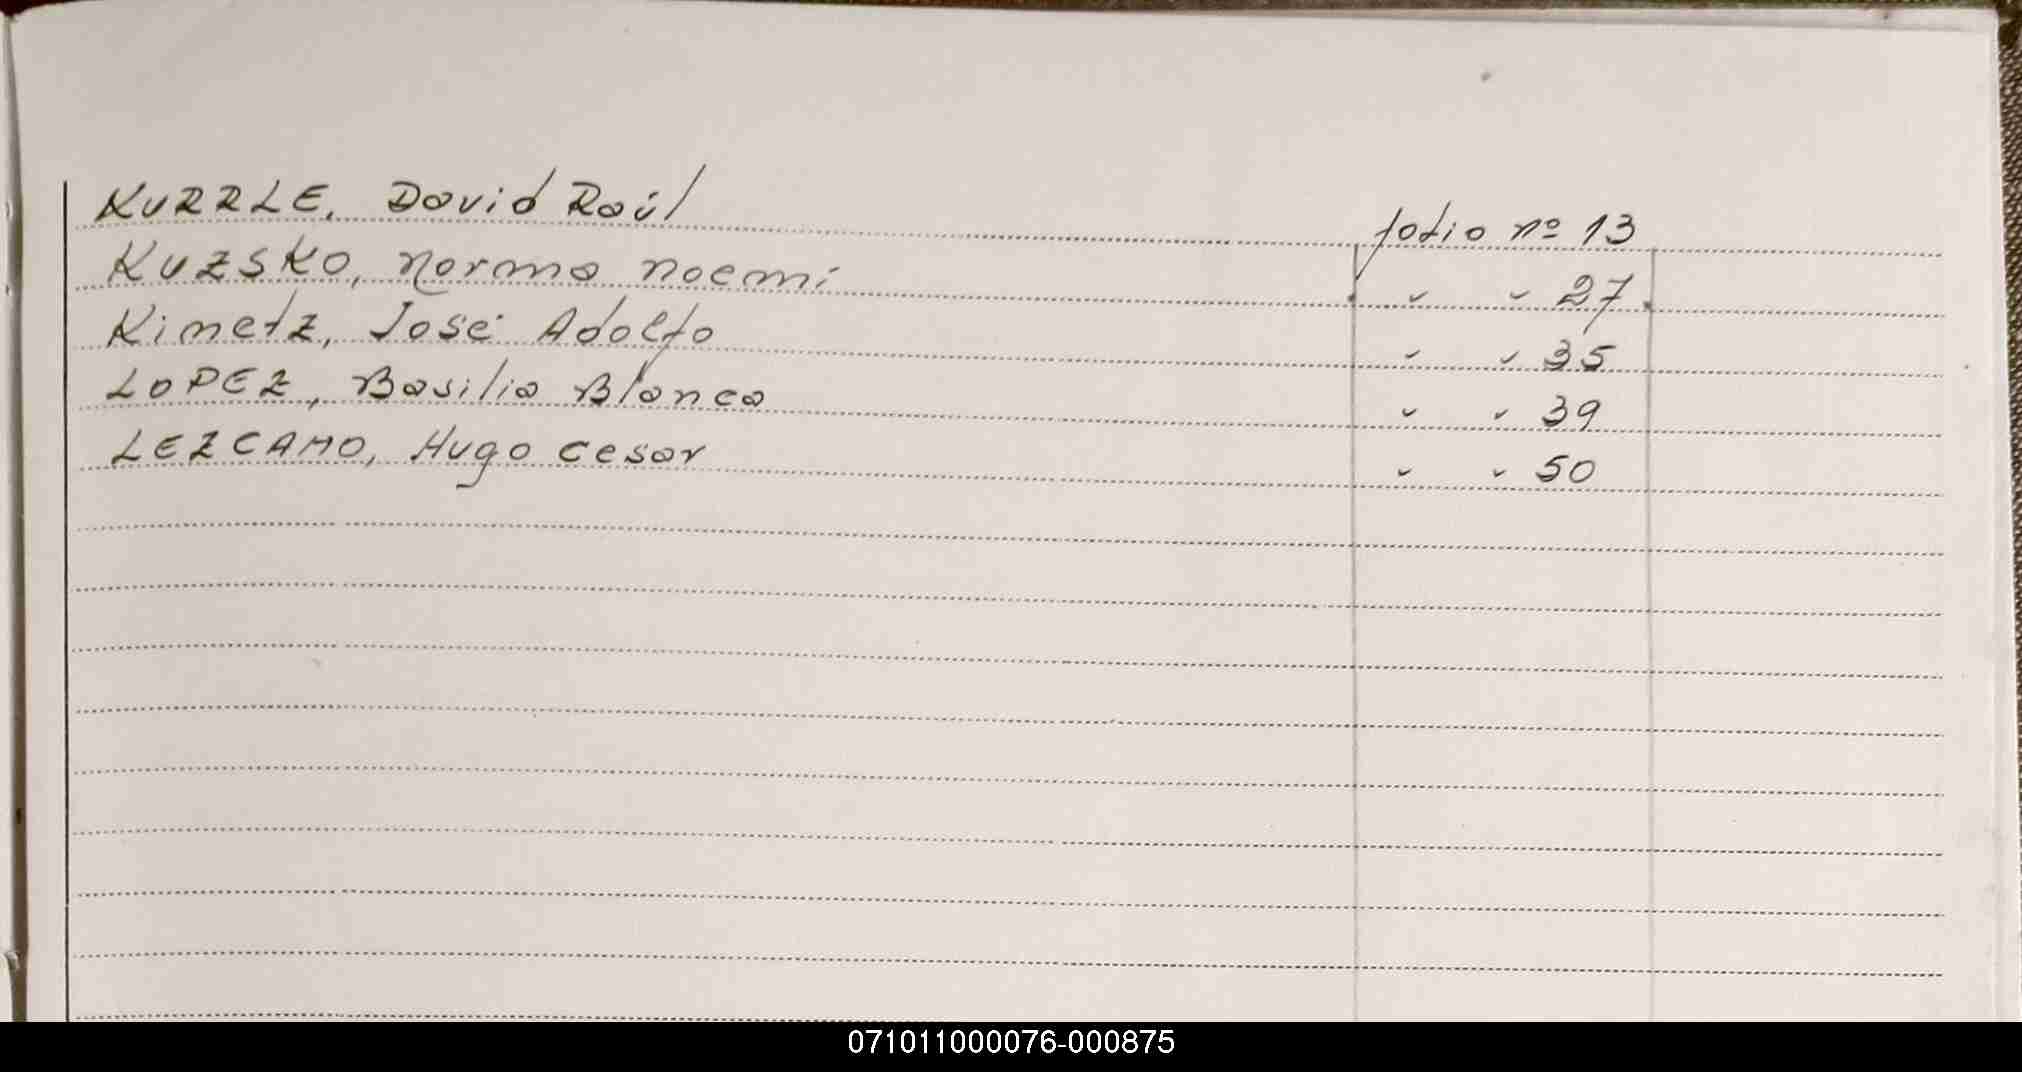 KURRLE, David Raúl folio nº 13
KUZSKO, Norma Noemi " " 27
Kimetz, José Adolfo " " 35
LOPEZ, Basilia Blanca " " 39
LEZCANO, Hugo Cesar " " 50
071011000076-000875